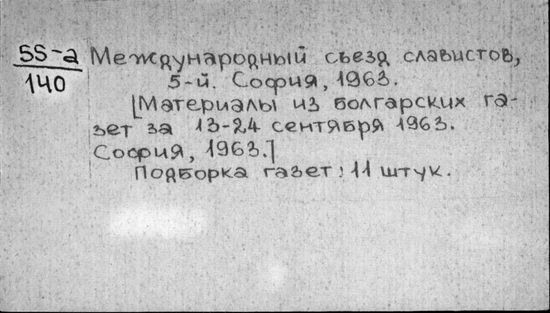 55-а
140
Международный съезд славистов,
5-й. София, 1963.
[Материалы из болгарских га-
зет за 13-24 сентября 1963.
София, 1963.]
Подборка газет: 11 штук.